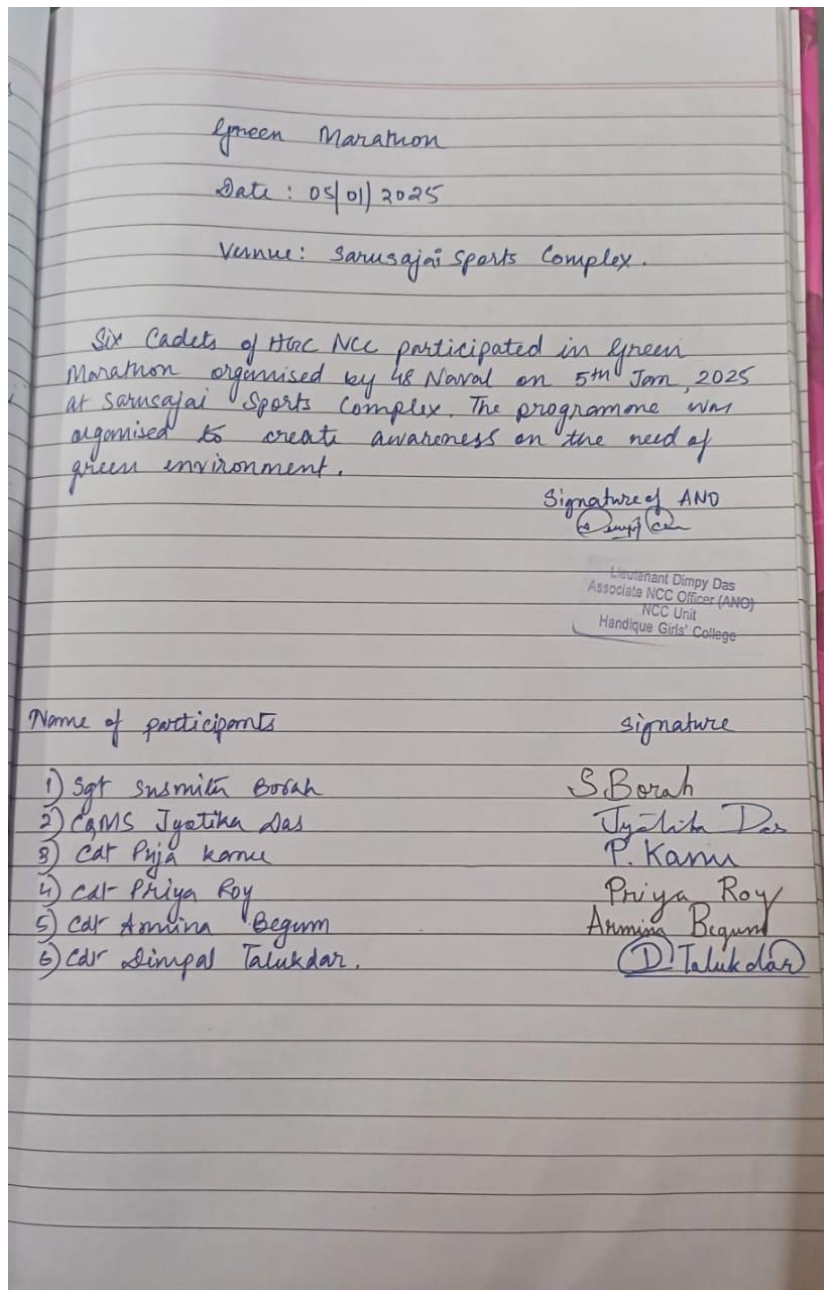 Green Marathon
Date : 05/01/2025
Vennue: Sarusajai Sports Complex.
Six Cadets of HGC NCC participated in Green
Marathon organised by 48 Naval on 5th Jan, 2025
at Sarusajai Sports Complex. The programme was
organised to create awareness on the need of
green environment.
Signature of ANO
Lieutenant Dimpy Das
Associate NCC Officer (ANO)
NCC Unit
Handique Girls' College
Name of participants Signature
1) Sgt Susmita Borah S.Borah
2) CQMS Jyotika Das Jyotika Das
3) Cdt Puja P.
4) Cdt Priya Roy Priya Roy
5) Cdt Armina Begum Armina Begum
6) Cdt Dimpal Talukdar. D Talukdar